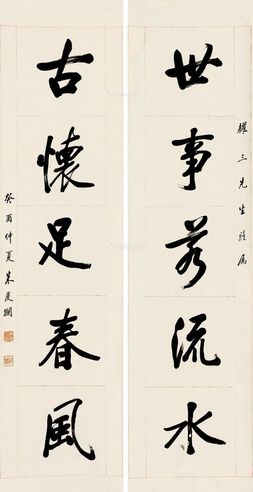 耀三先生雅属
世事若流水
古懷足春風
癸酉仲夏朱慶瀾